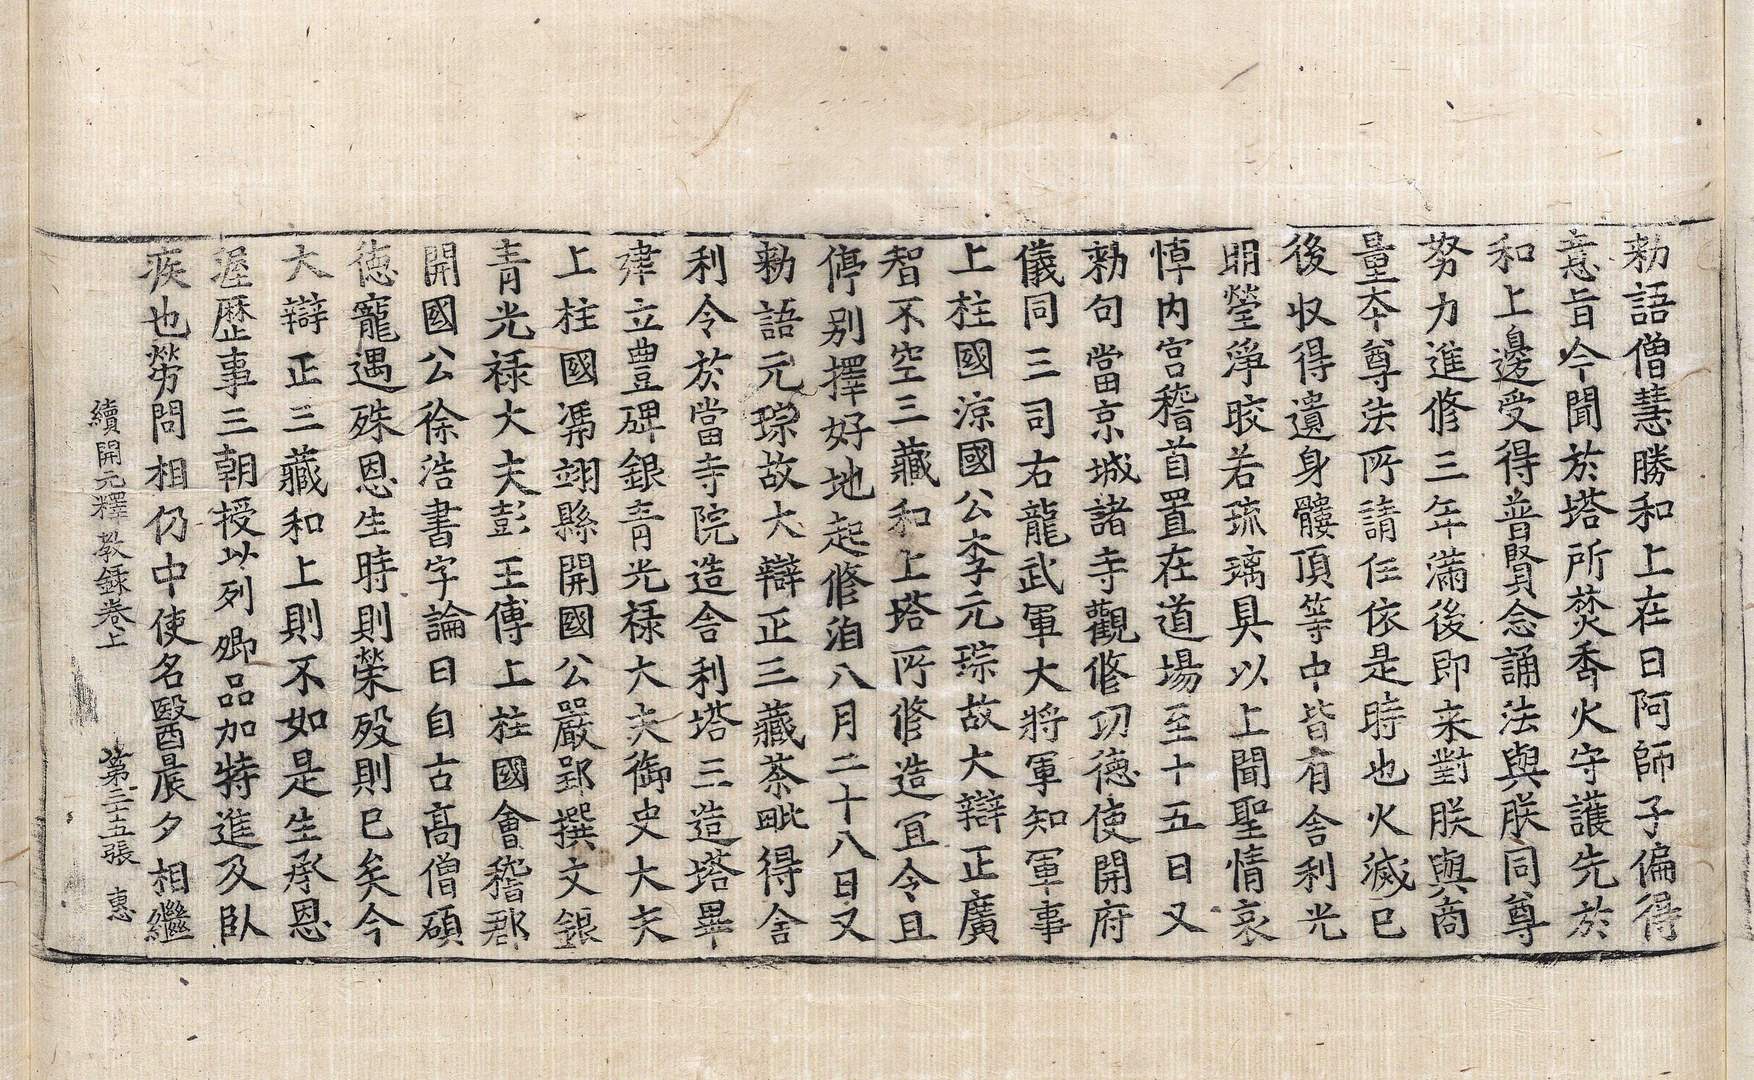 勑語僧慧勝和上在日阿師子偏得
意旨今聞於塔所焚香火守護先於
和上邊受得普賢念誦法與朕同尊
努力進修三年滿後即来對朕與商
量夲尊法所請任依是時也火滅已
後收得遺身髏頂等中皆有舎利光
明瑩淨皎若琉璃具以上聞聖情哀
悼内宫稽首置在道場至十五日又
勑句當京城諸寺觀修㓛德使開府
儀同三司右龍武軍大將軍知軍事
上柱國涼國公李元琮故大辯正廣
智不空三藏和上塔所修造冝令且
停别擇好地起修洎八月二十八日又
勑語元琮故大辯正三藏荼毗得舎
利令於當寺院造舎利塔三造塔畢
建立豊碑銀青光禄大夫御史大夫
上柱國馮翊縣開國公嚴郢撰文銀
青光禄大夫彭王傅上柱國會稽郡
開國公徐浩書字論曰自古高僧碩
德寵遇殊恩生時則榮殁則已矣今
大辯正三藏和上則不如是生承恩
渥歷事三朝授以列卿品加特進及卧
疾也勞問相仍中使名醫晨夕相繼
續開元釋教録卷上 第三十五張 惠